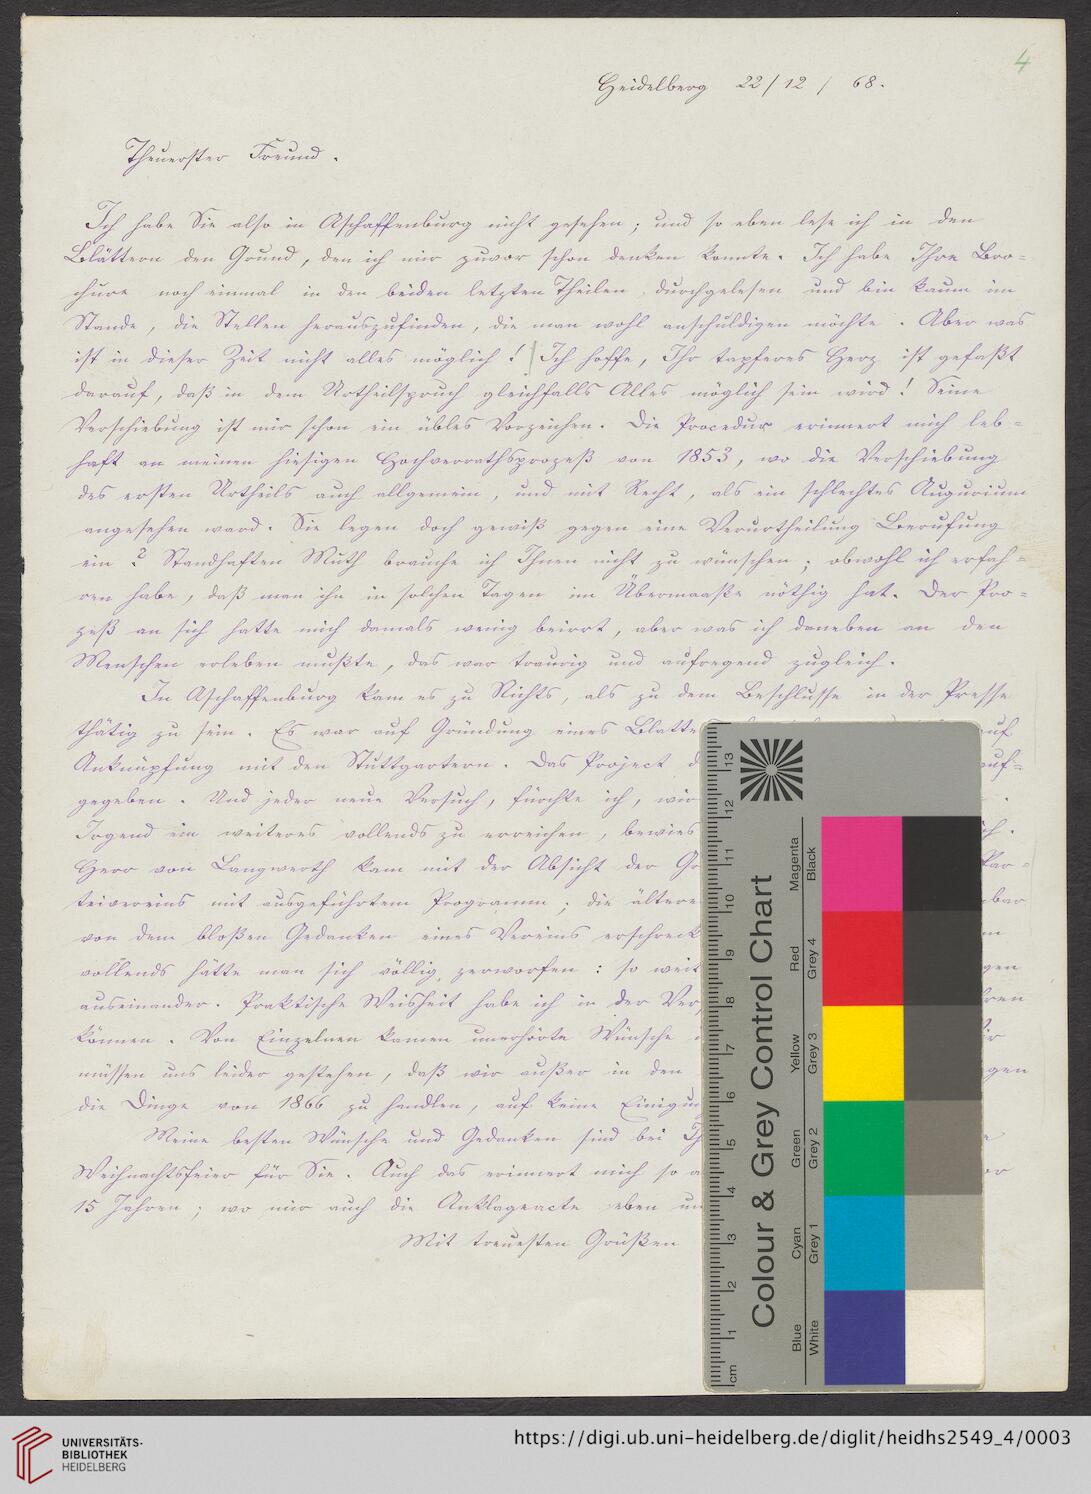 4
Heidelberg 22/12 / 68.
Theuerster Freund.
Ich habe Sie also in Aschaffenburg nicht gesehen; und so eben lese ich in den
Blättern den Grund, den ich mir zuvor schon denken konnte. Ich habe Ihre Bro-
chure noch einmal in den beiden letzten Theilen durchgelesen und bin kaum im
Stande, die Stellen herauszufinden, die man wohl anschuldigen möchte. Aber was
ist in dieser Zeit nicht alles möglich! Ich hoffe, Ihr tapferes Herz ist gefaßt
darauf, daß in dem Urtheilspruch gleichfalls Alles möglich sein wird! Seine
Verschiebung ist mir schon ein übles Vorzeichen. Die Procedur erinnert mich leb-
haft an meinen hiesigen Hochverrathsprozeß von 1853, wo die Verschiebung
des ersten Urtheils auch allgemein, und mit Recht, als ein schlechtes Augurium
angesehen ward. Sie legen doch gewiß gegen eine Verurtheilung Berufung
ein? Standhaften Muth brauche ich Ihnen nicht zu wünschen; obwohl ich erfah-
ren habe, daß man ihn in solchen Tagen im Übermaaße nöthig hat. Der Pro-
zeß an sich hatte mich damals wenig beirrt, aber was ich daneben an den
Menschen erleben mußte, das war traurig und aufregend zugleich.
In Aschaffenburg kam es zu Nichts, als zu dem Beschlusse in der Presse
thätig zu sein. Es war auf Gründung eines Blatte uf
Anknüpfung mit den Stuttgartern. Das Project d auf-
gegeben. Und jeder neue Versuch, fürchte ich, wir .
Irgend ein weiteres vollends zu erreichen, bewies ch.
Herr von Langwerth kam mit der Absicht der Gr Par-
teivereins mit ausgeführtem Programm; die ältere bar
von dem bloßen Gedanken eines Vereins erschreckt
vollends hätte man sich völlig zerworfen: so weit gen
auseinander. Praktische Weisheit habe ich in der Ver ren
können. Von Einzelnen kamen unerhörte Wünsche ir
müssen uns leider gestehen, daß wir außer in den gen
die Dinge von 1866 zu handlen, auf keine Einigun
Meine besten Wünsche und Gedanken sind bei Ih e
Weihnachtsfeier für Sie. Auch das erinnert mich so a or
15 Jahren; wo mir auch die Anklageacte eben un
Mit treuesten Grüßen
Colour & Grey Control Chart
Blue Cyan Green Yellow Red Magenta
White Grey 1 Grey 2 Grey 3 Grey 4 Black
cm 1 2 3 4 5 6 7 8 9 10 11 12 13
UNIVERSITÄTS-
BIBLIOTHEK
HEIDELBERG
https://digi.ub.uni-heidelberg.de/diglit/heidhs2549_4/0003